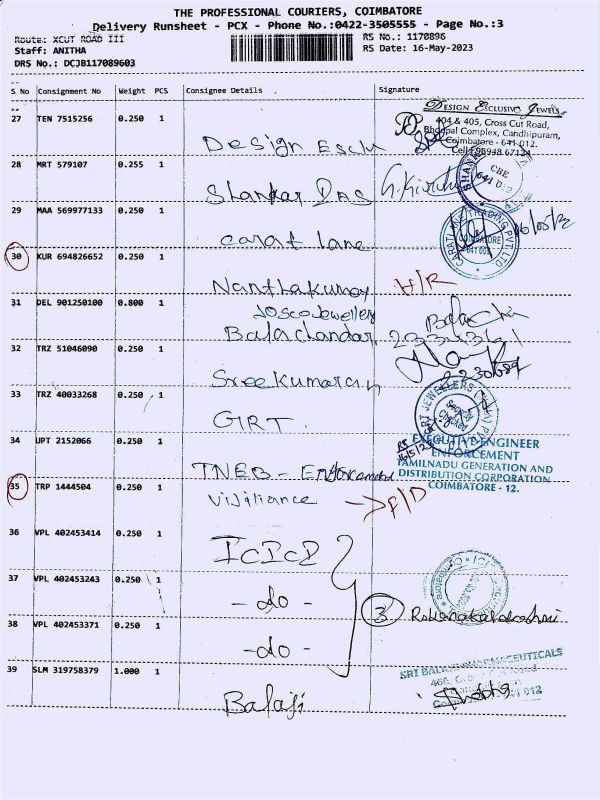 THE PROFESSIONAL COURIERS, COIMBATORE
Delivery Runsheet - PCX - Phone No.:0422-3505555 - Page No.:3
Route: XCUT ROAD III
RS No.: 1170896
Staff: ANITHA
RS Date: 16-May-2023
DRS No.: DCJB117089603
S No Consignment No Weight PCS Consignee Details Signature
DESIGN EXCLUSIVE JEWELS
27 TEN 7515256 0.250 1
404 & 405, Cross Cut Road,
Bhoopal Complex, Gandhipuram,
Coimbatore - 641 012.
Design
28 MRT 579107 0.255 1
CBE
641 012
Shankar Das
29 MAA 569977133 0.250 1
CARATLANE TRADING PVT. LTD
COIMBATORE
carat lane
30 KUR 694826652 0.250 1
Nanthakumar
31 DEL 901250100 0.800 1
Josco Jewellery
Balachandar
32 TRZ 51046090 0.250 1
Sreekumaran
33 TRZ 40033268 0.250 1
GRT
34 UPT 2152066 0.250 1
EXECUTIVE ENGINEER
ENFORCEMENT
TAMILNADU GENERATION AND
DISTRIBUTION CORPORATION
COIMBATORE - 12.
TNEB -
35 TRP 1444504 0.250 1
Vijiliance
36 VPL 402453414 0.250 1
ICICI
37 VPL 402453243 0.250 1
- do -
3
38 VPL 402453371 0.250 1
- do -
39 SLM 319758379 1.000 1
Balaji